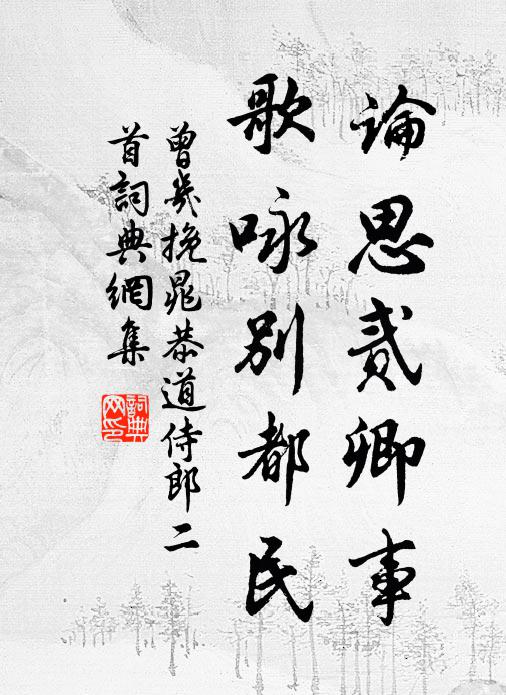 論思貳卿事
歌咏別都民
曾幾挽晁恭道侍郎二
首詞典網集
詞典
网印